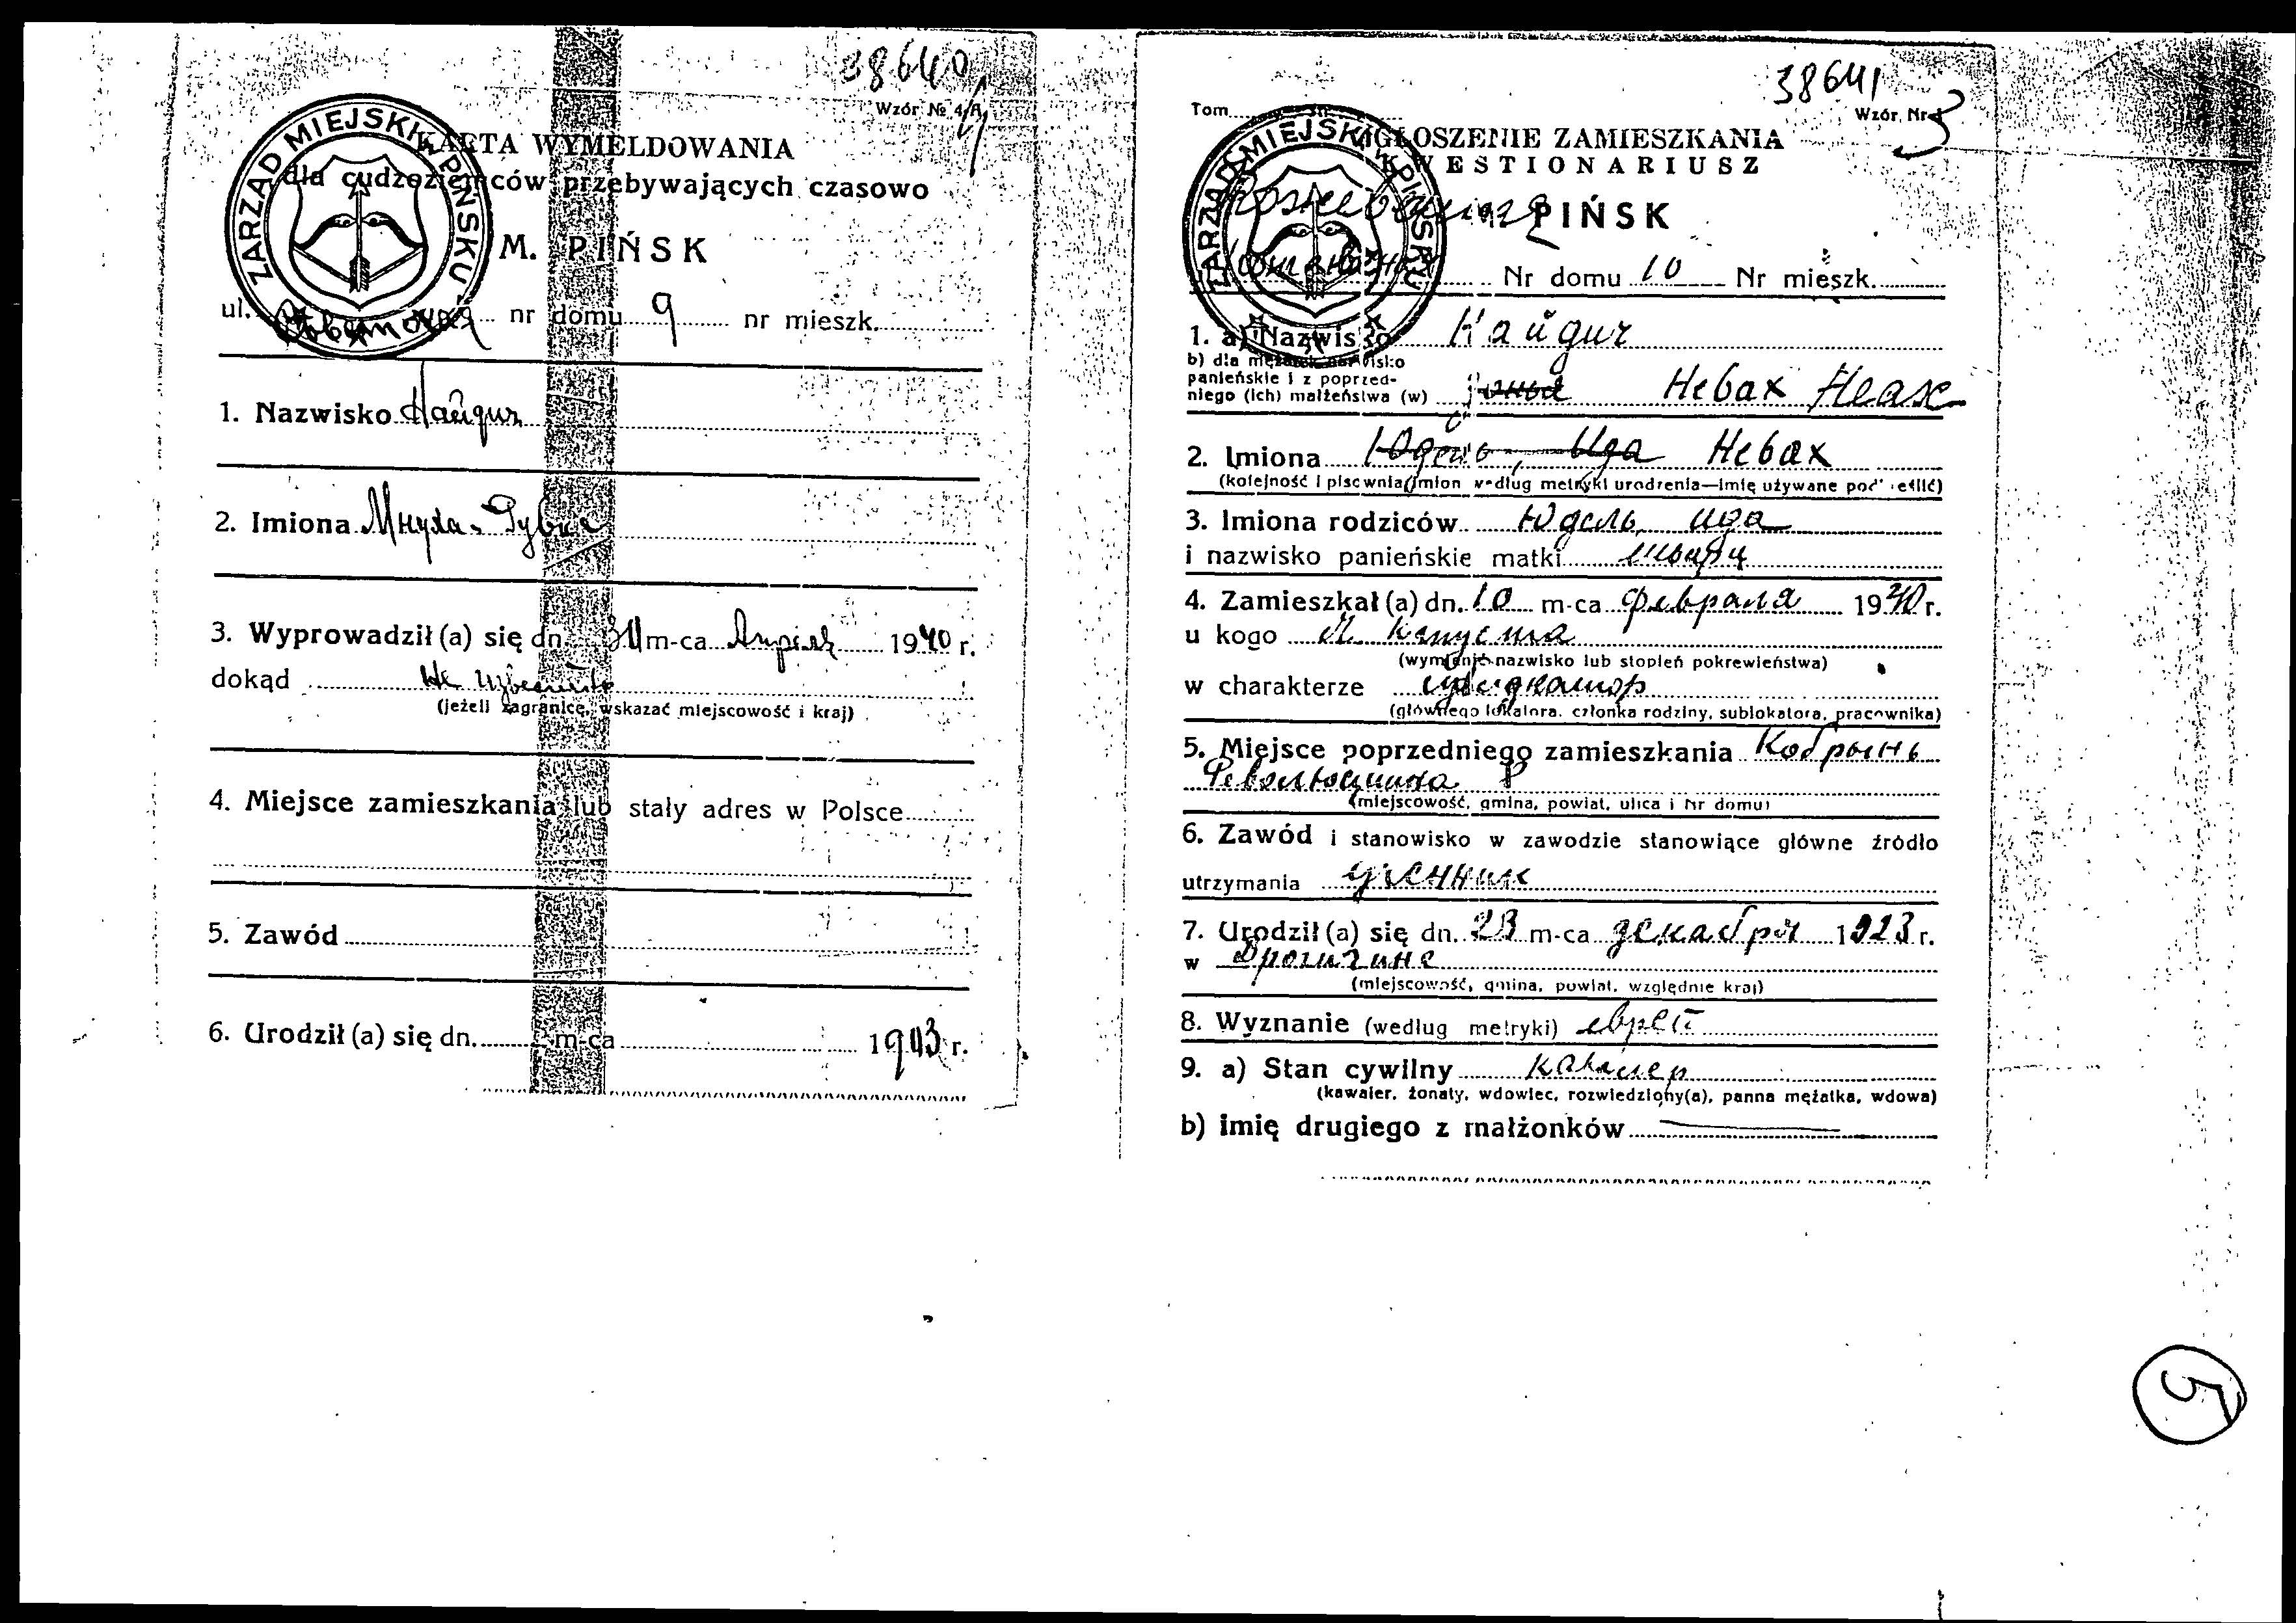 38640
Wzór № 4/A
ZARZĄD MIEJSKI W PIŃSKU
KARTA WYMELDOWANIA
dla cudzoziemców przebywających czasowo
M. PIŃSK
ul. nr domu 9 nr mieszk.
1. Nazwisko Найдич
2. Imiona
3. Wyprowadził (a) się dn. m-ca 1940 r.
dokąd Не
(jeżeli zagranicę, wskazać miejscowość i kraj)
4. Miejsce zamieszkania lub stały adres w Polsce
5. Zawód
6. Urodził (a) się dn. m-ca 1903 r.
38641
Tom
Wzór. Nr
ZARZĄD MIEJSKI W PIŃSKU
ZGŁOSZENIE ZAMIESZKANIA
KWESTIONARIUSZ
PIŃSK
Nr domu 10 Nr mieszk.
1. a) Nazwisko Найдич
b) dla mężatek nazwisko
panieńskie i z poprzed-
niego (ich) małżeństwa (w) Невах
2. Imiona Юдель, Ида Невах
(kolejność i pisownia imion według metryki urodzenia—imię używane podkreślić)
3. Imiona rodziców Юдель, Ида
i nazwisko panieńskie matki
4. Zamieszkał (a) dn. 10 m-ca февраля 1940 r.
u kogo
(wymienić nazwisko lub stopień pokrewieństwa)
w charakterze
(głównego lokatora, członka rodziny, sublokatora, pracownika)
5. Miejsce poprzedniego zamieszkania Кобрынь
(miejscowość, gmina, powiat, ulica i Nr domu)
6. Zawód i stanowisko w zawodzie stanowiące główne źródło
utrzymania ученик
7. Urodził (a) się dn. 23 m-ca декабря 1923 r.
w Дрогичине
(miejscowość, gmina, powiat, względnie kraj)
8. Wyznanie (według metryki) еврей
9. a) Stan cywilny кавалер
(kawaler, żonaty, wdowiec, rozwiedziony(a), panna mężatka, wdowa)
b) imię drugiego z małżonków
5